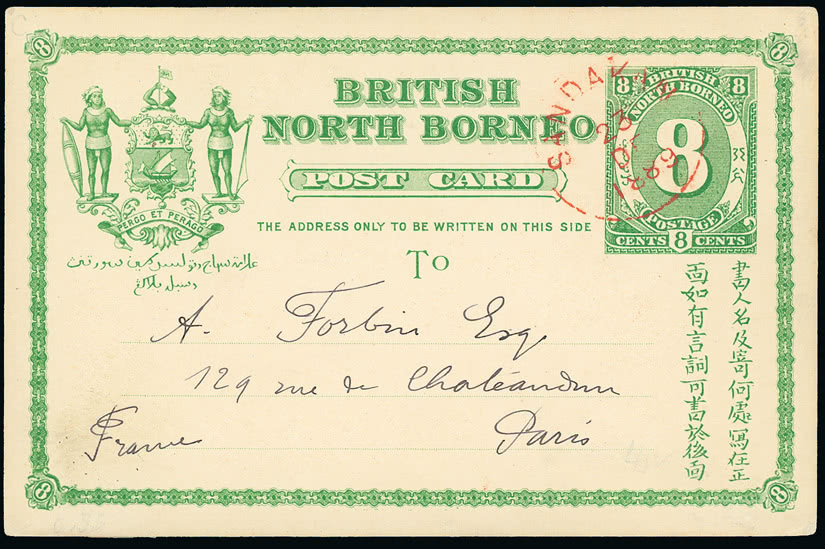 8 8
BRITISH
NORTH BORNEO
POST CARD
THE ADDRESS ONLY TO BE WRITTEN ON THIS SIDE
TO
PERGO ET PERAGO
8 BRITISH 8
NORTH BORNEO
8
POSTAGE
CENTS 8 CENTS
SANDAK
23
A. Forbin Esq.
129 rue de Chateaudun
Paris
France
書人名及寄何處寫在正
面如有言詞可書於後面
8 8